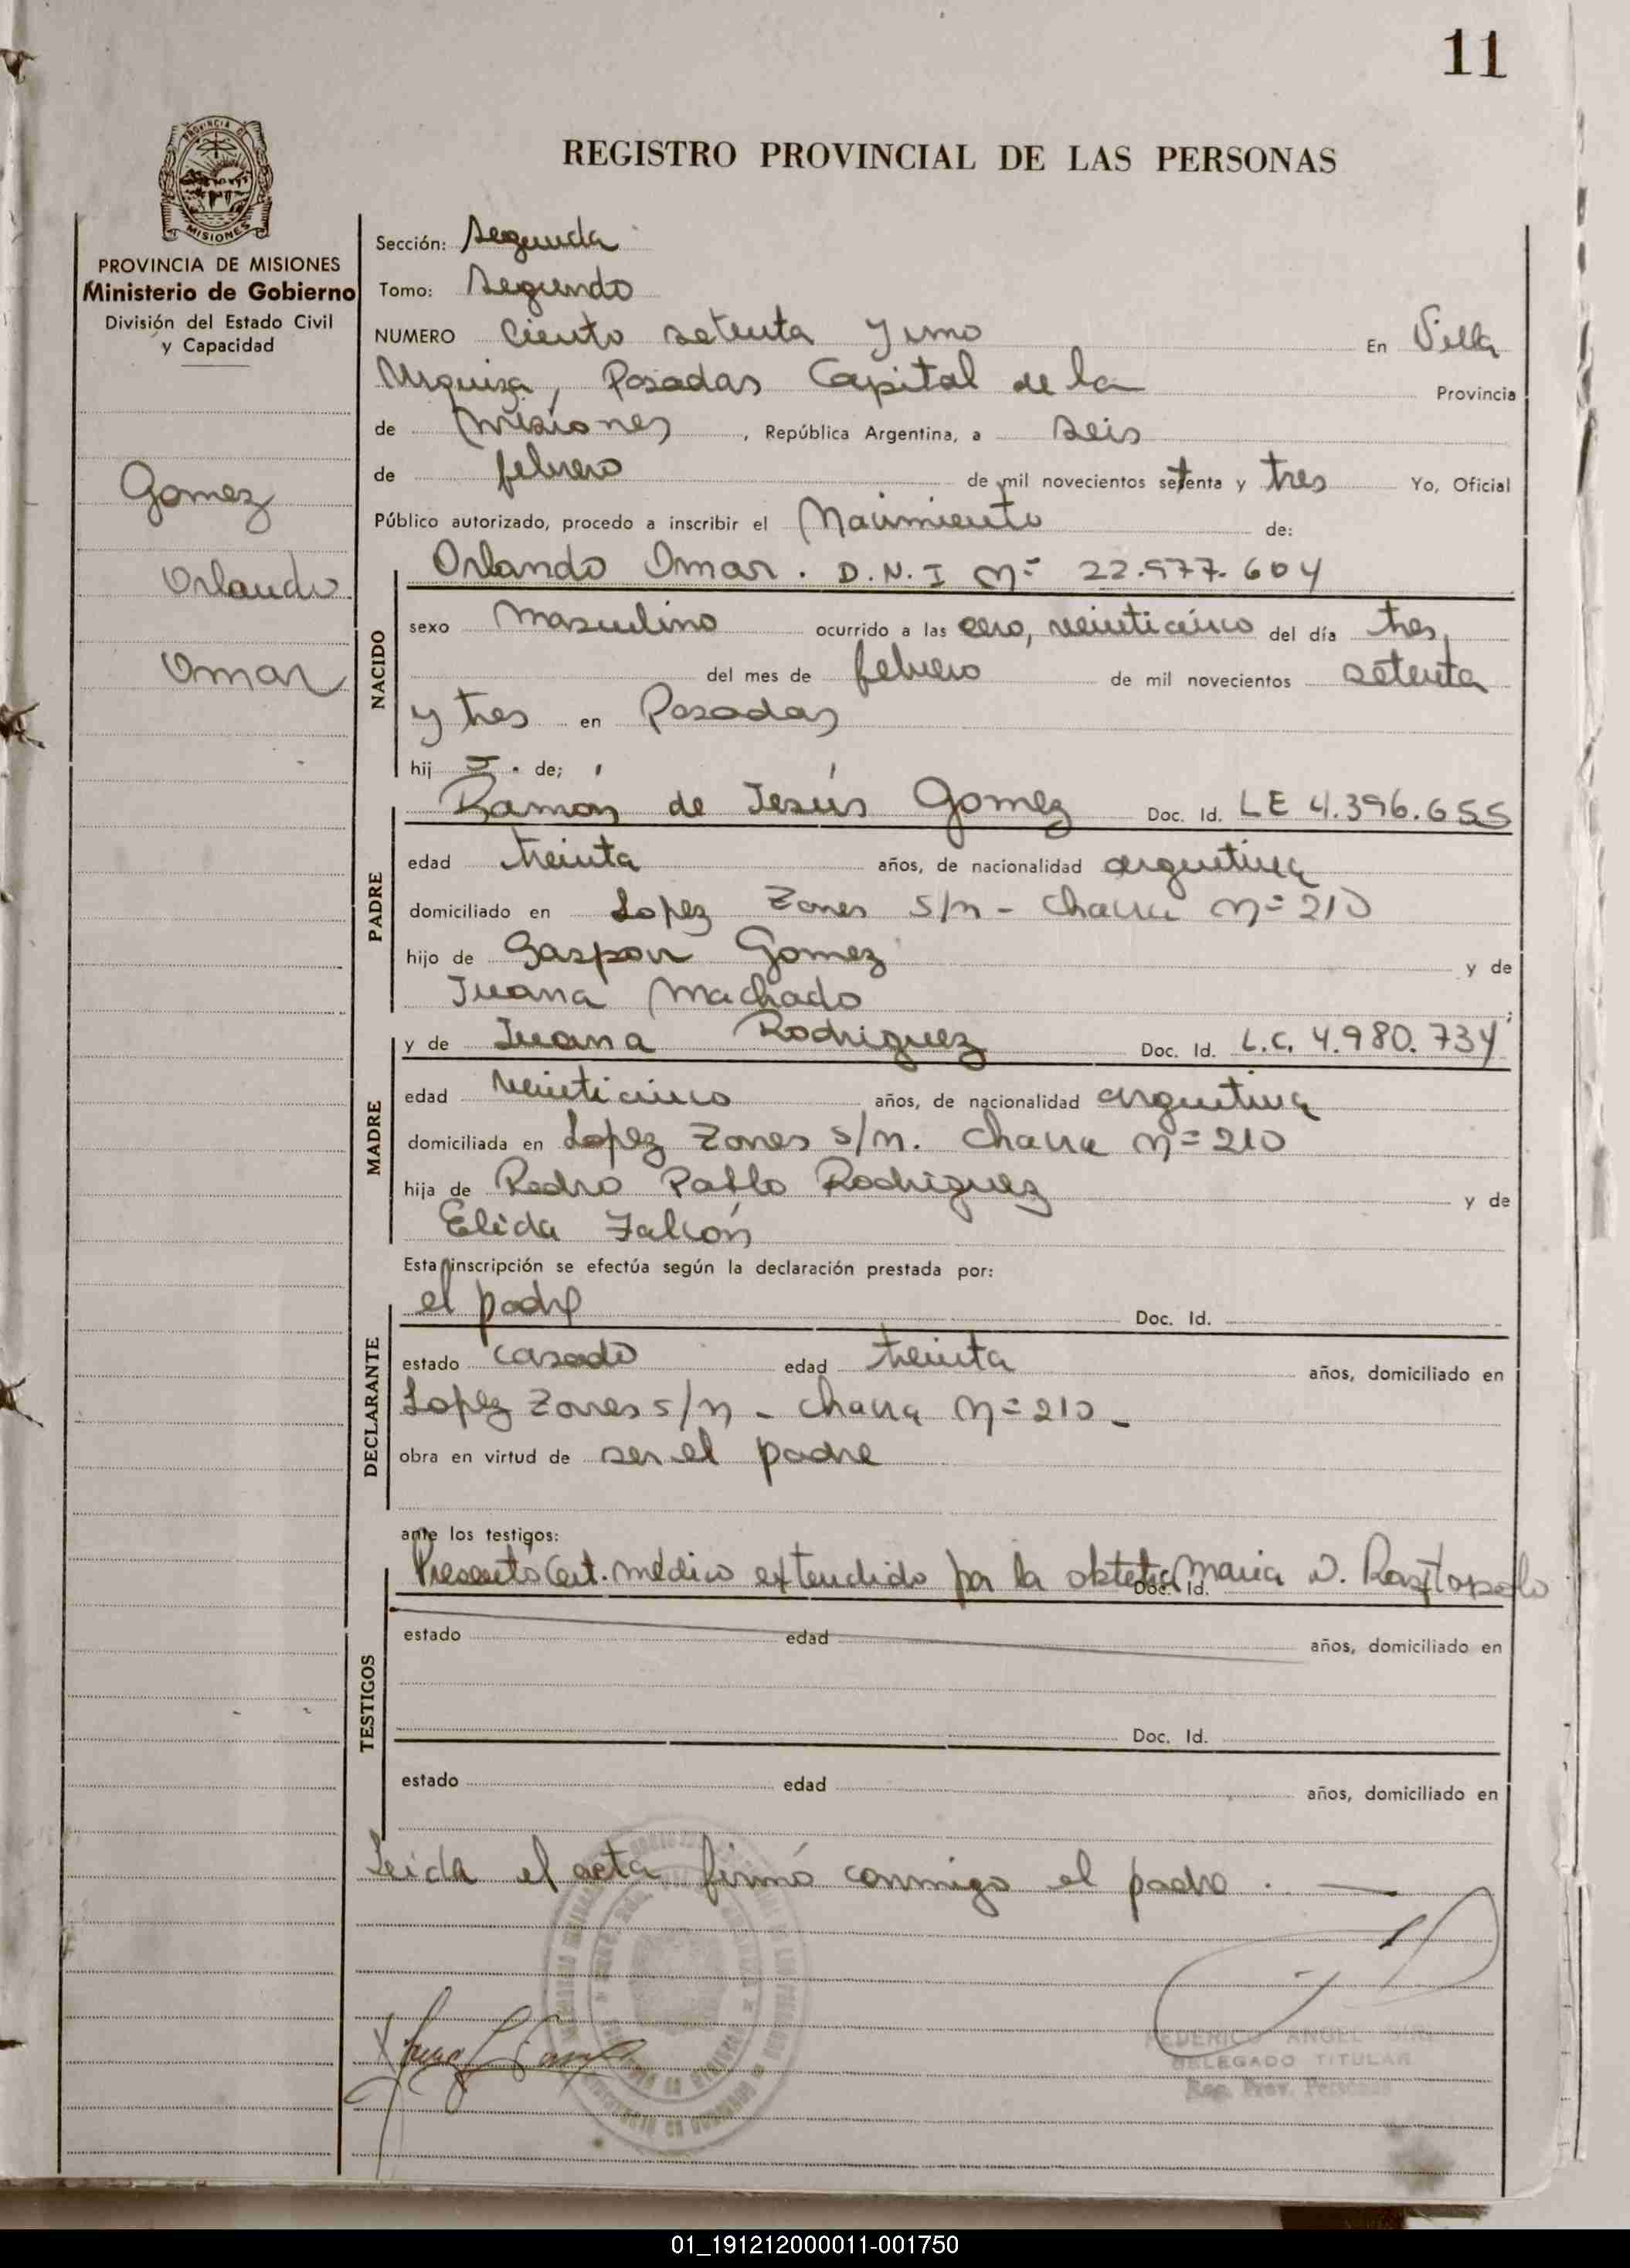 11
PROVINCIA DE
MISIONES
REGISTRO PROVINCIAL DE LAS PERSONAS
PROVINCIA DE MISIONES
Ministerio de Gobierno
División del Estado Civil
y Capacidad
Gomez
Orlando
Omar
Sección: Segunda
Tomo: Segundo
NUMERO Ciento setenta y uno En Villa
Urquiza, Posadas Capital de la Provincia
de Misiones, República Argentina, a seis
de febrero de mil novecientos setenta y tres Yo, Oficial
Público autorizado, procedo a inscribir el Nacimiento de:
Orlando Omar. D.N.I Nº 22.977.604
NACIDO
sexo masculino ocurrido a las cero, veinticinco del día tres,
del mes de febrero de mil novecientos setenta
y tres en Posadas
hij de;
Ramón de Jesús Gomez Doc. Id. LE 4.396.655
PADRE
edad treinta años, de nacionalidad argentina
domiciliado en Lopez Zones s/n - Chacra Nº 210
hijo de Gaspar Gomez y de
Juana Machado
MADRE
y de Juana Rodriguez Doc. Id. L.C. 4.980.734
edad veinticinco años, de nacionalidad argentina
domiciliada en Lopez Zones s/n. Chacra Nº 210
hija de Pedro Pablo Rodriguez y de
Elida Falcón
Esta inscripción se efectúa según la declaración prestada por:
el padre Doc. Id.
DECLARANTE
estado casado edad treinta años, domiciliado en
Lopez Zones s/n - Chacra Nº 210 -
obra en virtud de ser el padre
ante los testigos:
Presentó Cert. médico extendido por la obstetra Maria D. Doc. Id.
TESTIGOS
estado edad años, domiciliado en
Doc. Id.
estado edad años, domiciliado en
Leida el acta firmó conmigo el padre. —
DELEGADO TITULAR
Reg. Prov. Personas
01_191212000011-001750